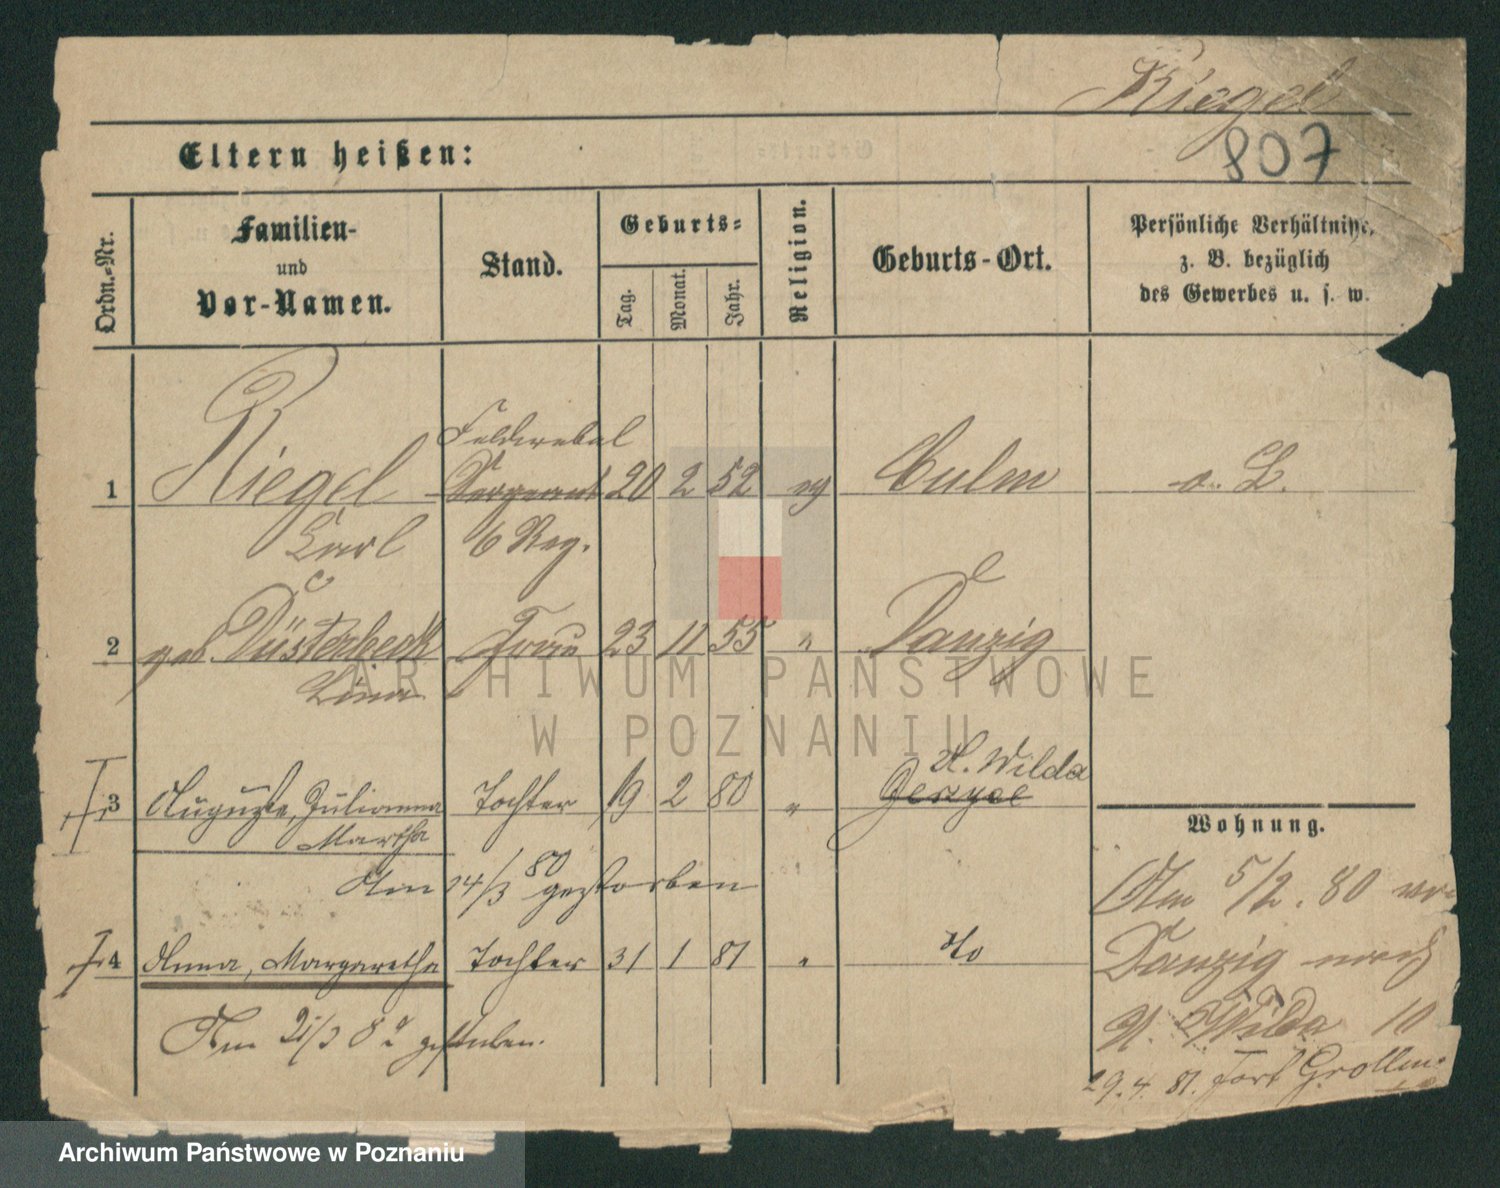 Riegel
807
Eltern heißen:
Ordn.-Nr.
Familien-
und
Vor-Namen.
Stand.
Geburts-
Tag.
Monat.
Jahr.
Religion.
Geburts-Ort.
Persönliche Verhältnisse,
z. B. bezüglich
des Gewerbes u. s. w.
Feldwebel
1 Riegel Sergeant 20 2 52 ev Culm
Carl 6 Reg.
2 geb. Düsterbeck Frau 23 11 55 " Danzig
Lina
ARCHIWUM PAŃSTWOWE
W POZNANIU
U. Wilda
3 Auguste, Julianna Tochter 19 2 80 " Jerzyce
Martha
Wohnung.
Am 24/3 80 gestorben
Am 5/2. 80 von
4 Anna, Margaretha Tochter 31 1 81 "
Danzig nach
Am 21/3 82 gestorben.
U. Wilda 10
29. 4. 81. Fort Grollm.
Archiwum Państwowe w Poznaniu